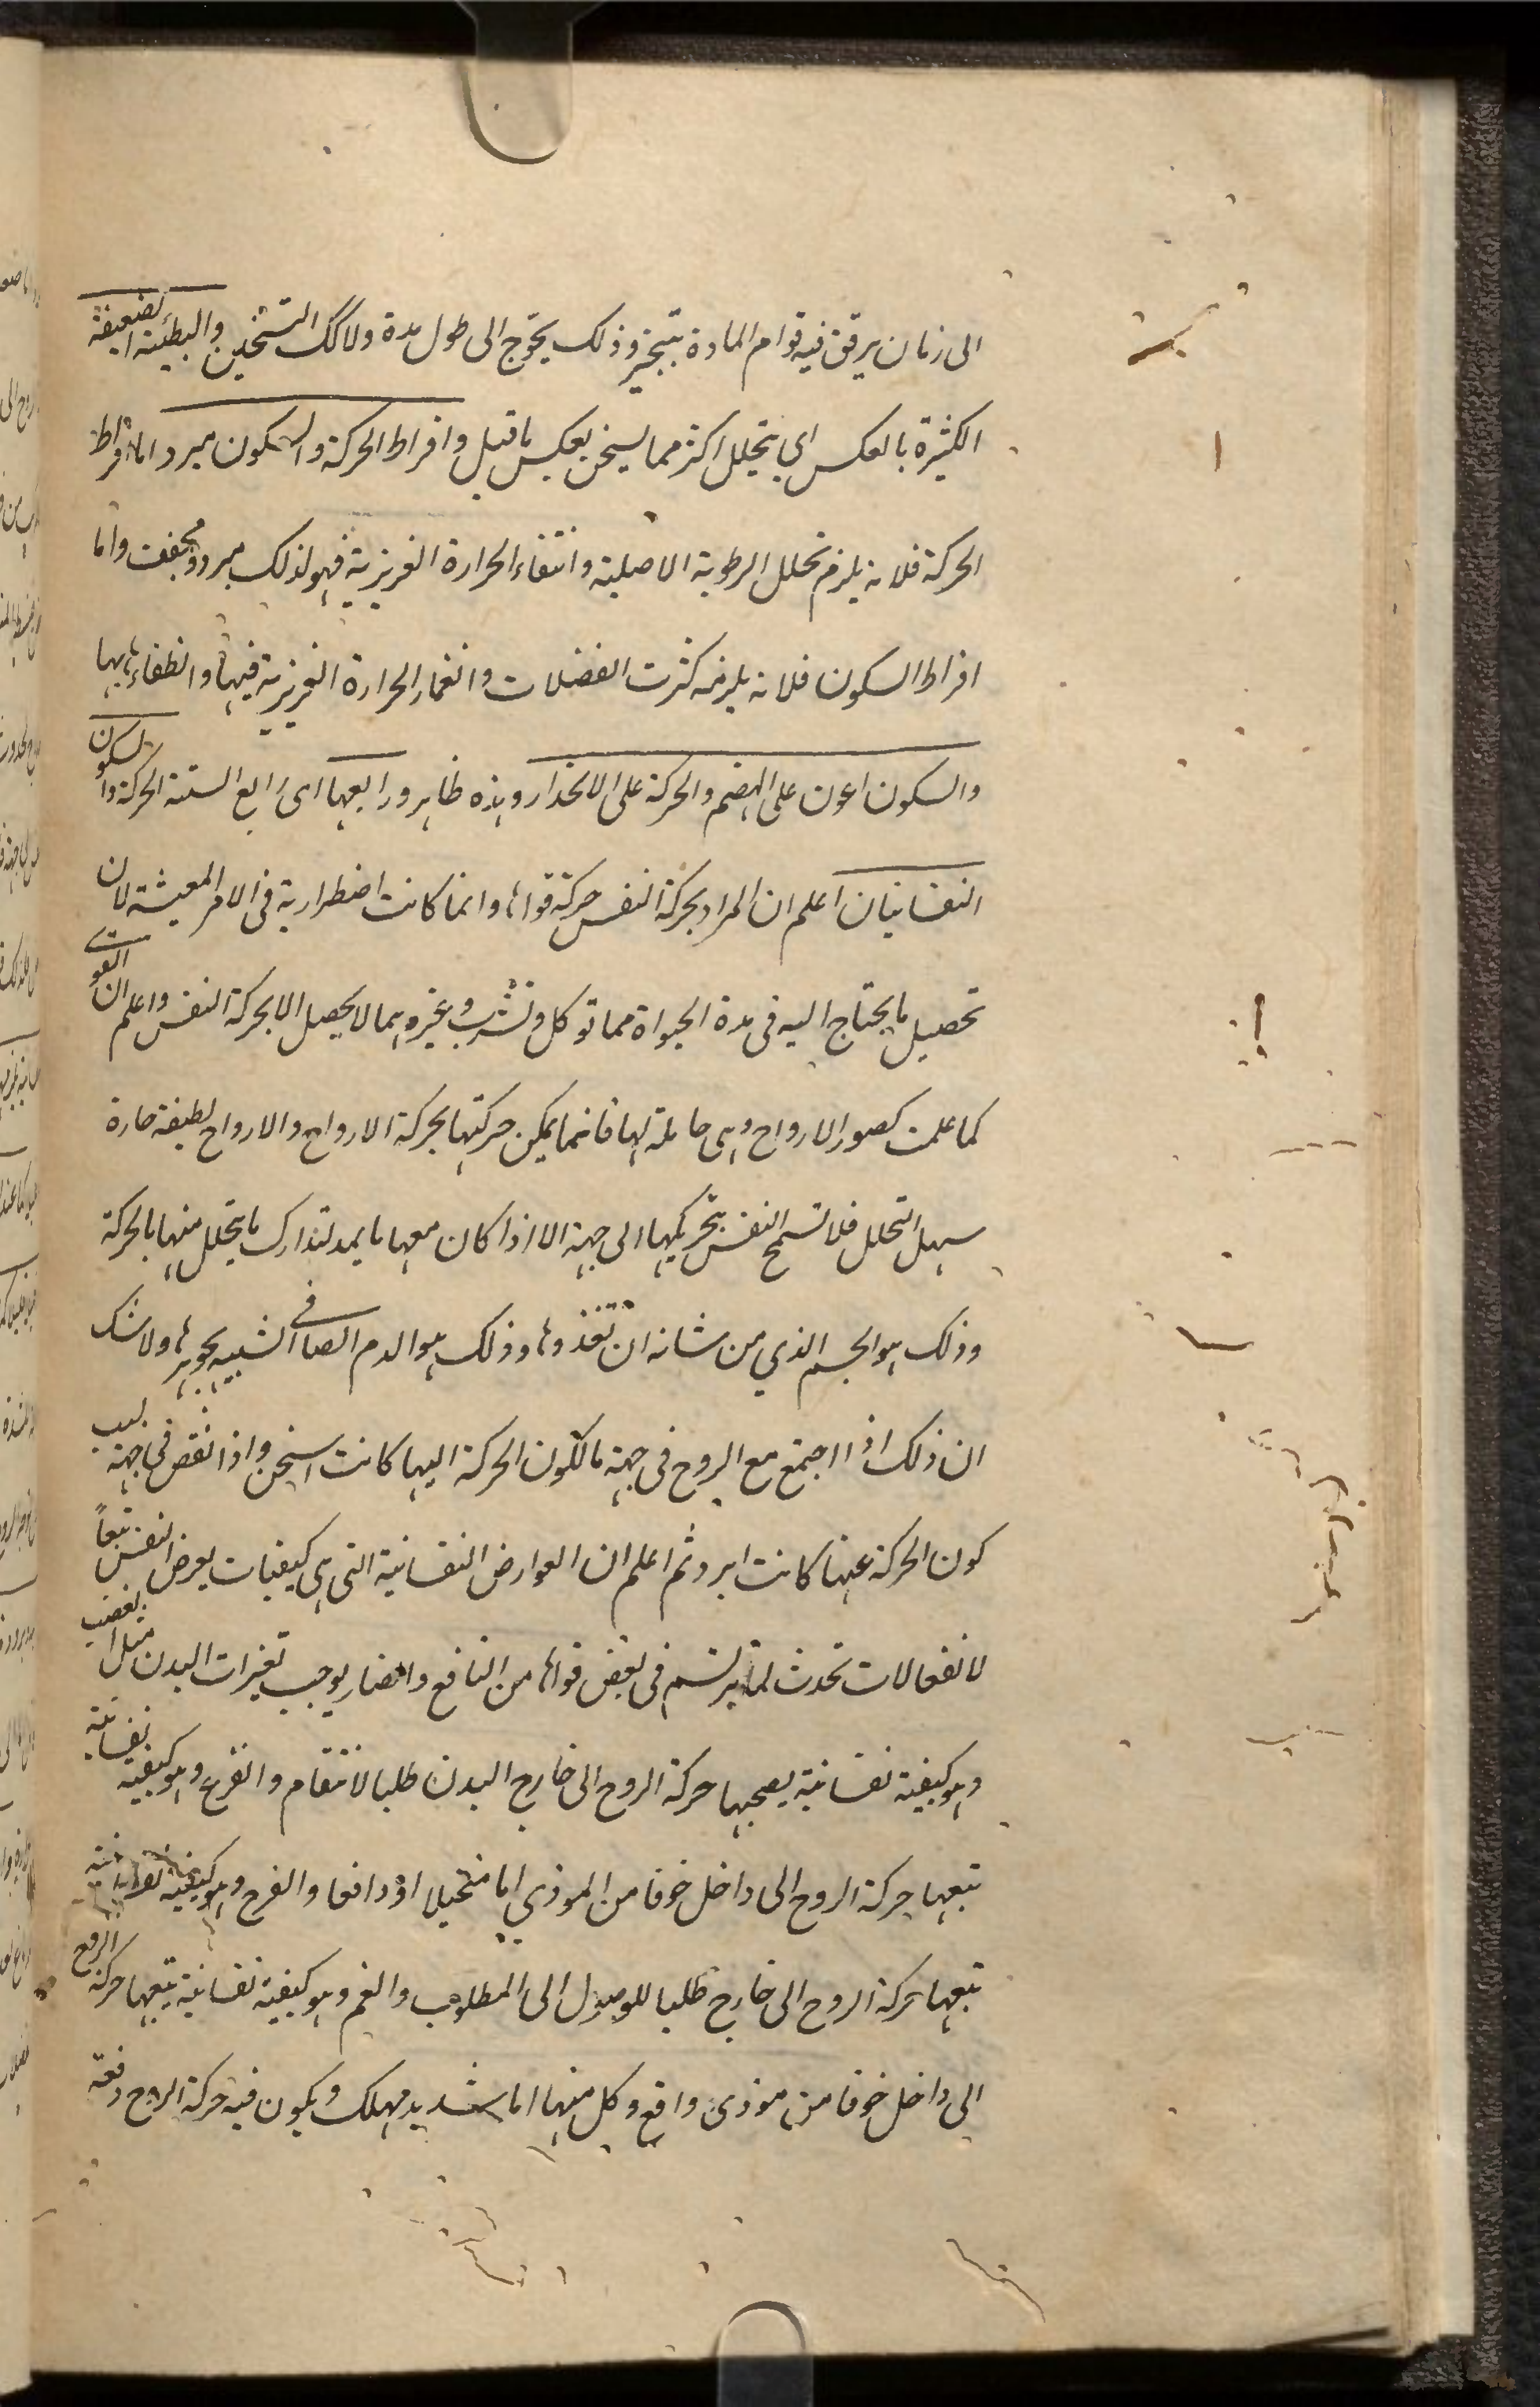 الى زمان يرقق فيه قوام المادة بتبخير وذلك يحوج الى طول مدة ولا كك التسخين والبطيئة الضعيفة
الكثيرة بالعكس اي يتحلل اكثر مما يسخن بعكس ما قيل وافراط الحركة والسكون مبرد اما افراط
الحركة فلانه يلزم تحلل الرطوبة الاصلية وانتفاء الحرارة الغريزية فهو لذلك مبرد ومجفف واما
افراط السكون فلانه يلزمه كثرت الفضلات وانغمار الحرارة الغريزية فيها وانطفاءها بها
والسكون اعون على الهضم والحركة على الانحدار وهذه ظاهر ورابعها اى رابع الستة الحركة والسكون
النفسانيان اعلم ان المراد بحركة النفس حركة قواها وانما كانت اضطرارية فى الامر المعيشة لان
تحصيل ما يحتاج اليه فى مدة الحيواة مما توكل وتشرب وغيرهما لا يحصل الا بحركة النفس واعلم ان القوى
كما علمت كصور الارواح وهى حاملة لها فانما يمكن حركتها بحركة الارواح والارواح لطيفة حارة
سهل التحلل فلا تسمح النفس بتحريكها الى جهة الا اذا كان معها ما يمد لتدارك ما يتحلل منها بالحركة
وذلك هو الجسم الذي من شانه ان تغذوها وذلك هو الدم الصافى الشبيه بجوهرها ولا شك
ان ذلك اذا اجتمع مع الروح فى جهة ما لكون الحركة اليها كانت اسخن واذا نقص فى جهة لسبب
كون الحركة عنها كانت ابرد ثم اعلم ان العوارض النفسانية التى هى كيفيات يعرض النفس تبعاً
لانفعالات تحدث لما يرتسم فى بعض قواها من النافع والضار يوجب تغيرات البدن مثل الغضب
وهو كيفية نفسانية يصحبها حركة الروح الى خارج البدن طلبا لانتقام والفزع وهو كيفية نفسانية
تبعها حركة الروح الى داخل خوفا من الموذي اما متخيلا او واقعا والفرح وهو كيفية نفسانية
تبعها حركة الروح الى خارج طلبا للوصول الى المطلوب والغم وهو كيفية نفسانية يتبعها حركة الروح
الى داخل خوفا من موذى واقع وكل منها اما شديد مهلك ويكون فيه حركة الروح دفعة